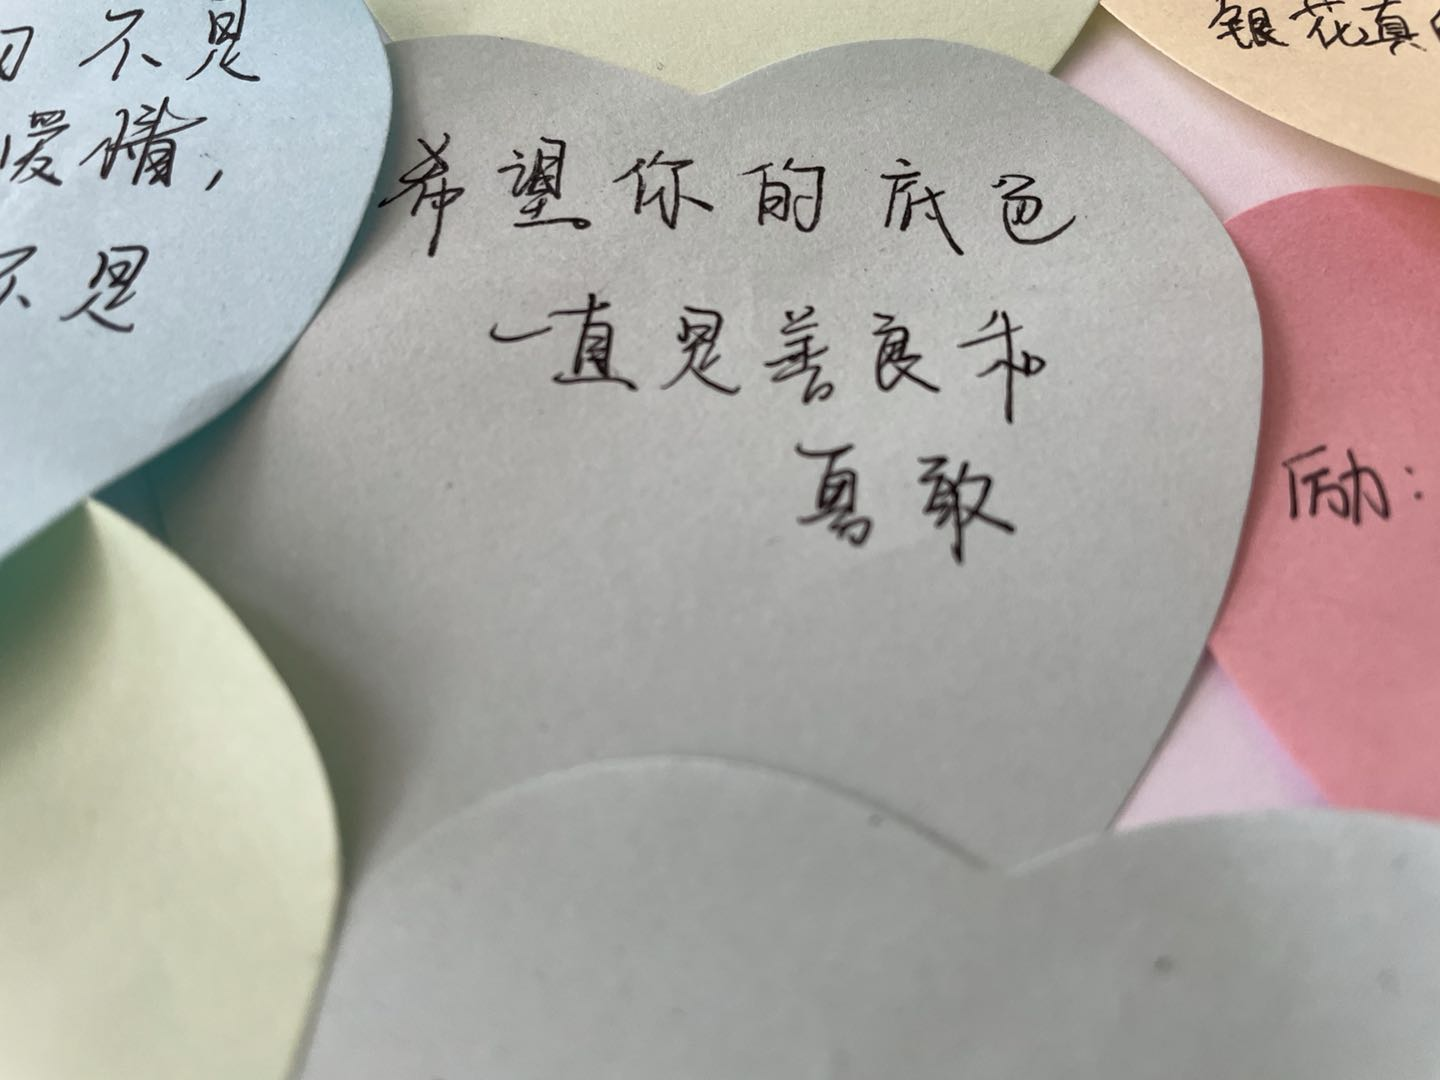 不是
爱情,
不是
希望你的底色
一直是善良和
勇敢
银花真
励: